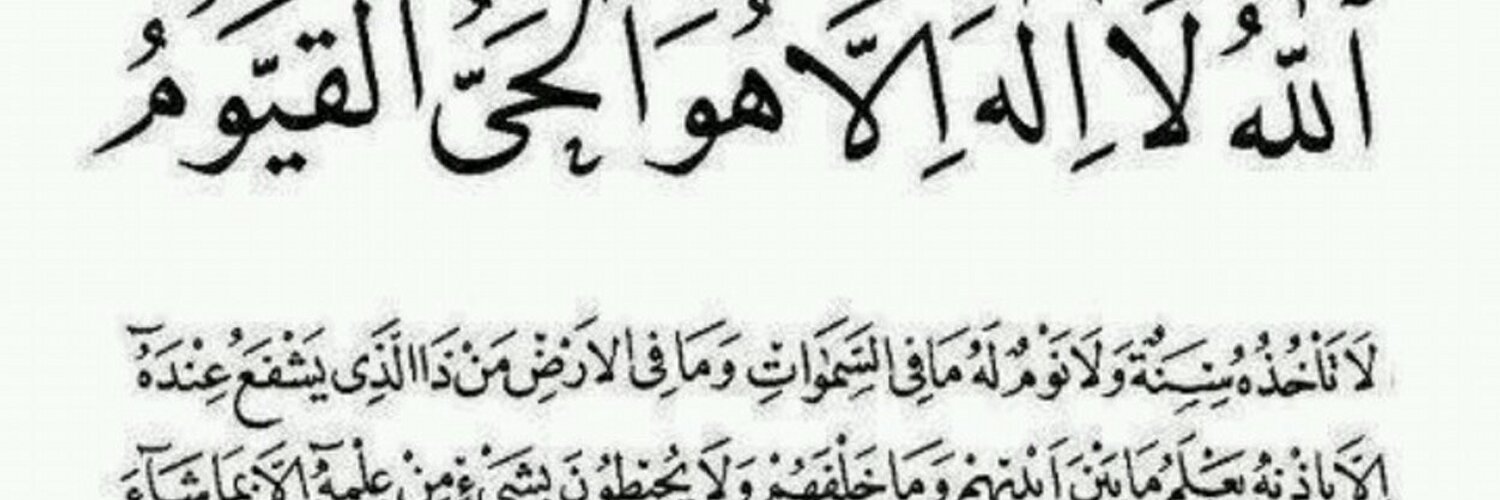 اَللّٰهُ لَا اِلٰهَ اِلَّا هُوَ الْحَىُّ الْقَيُّومُ
لَا تَأْخُذُهُ سِنَةٌ وَلَا نَوْمٌ لَهُ مَا فِى السَّمٰوَاتِ وَمَا فِى الْاَرْضِ مَنْ ذَا الَّذِى يَشْفَعُ عِنْدَهُٓ
اِلَّا بِاِذْنِهِ يَعْلَمُ مَا بَيْنَ اَيْدِيهِمْ وَمَا خَلْفَهُمْ وَلَا يُحِيطُونَ بِشَىْءٍ مِنْ عِلْمِهِٓ اِلَّا بِمَا شَٓاءَ